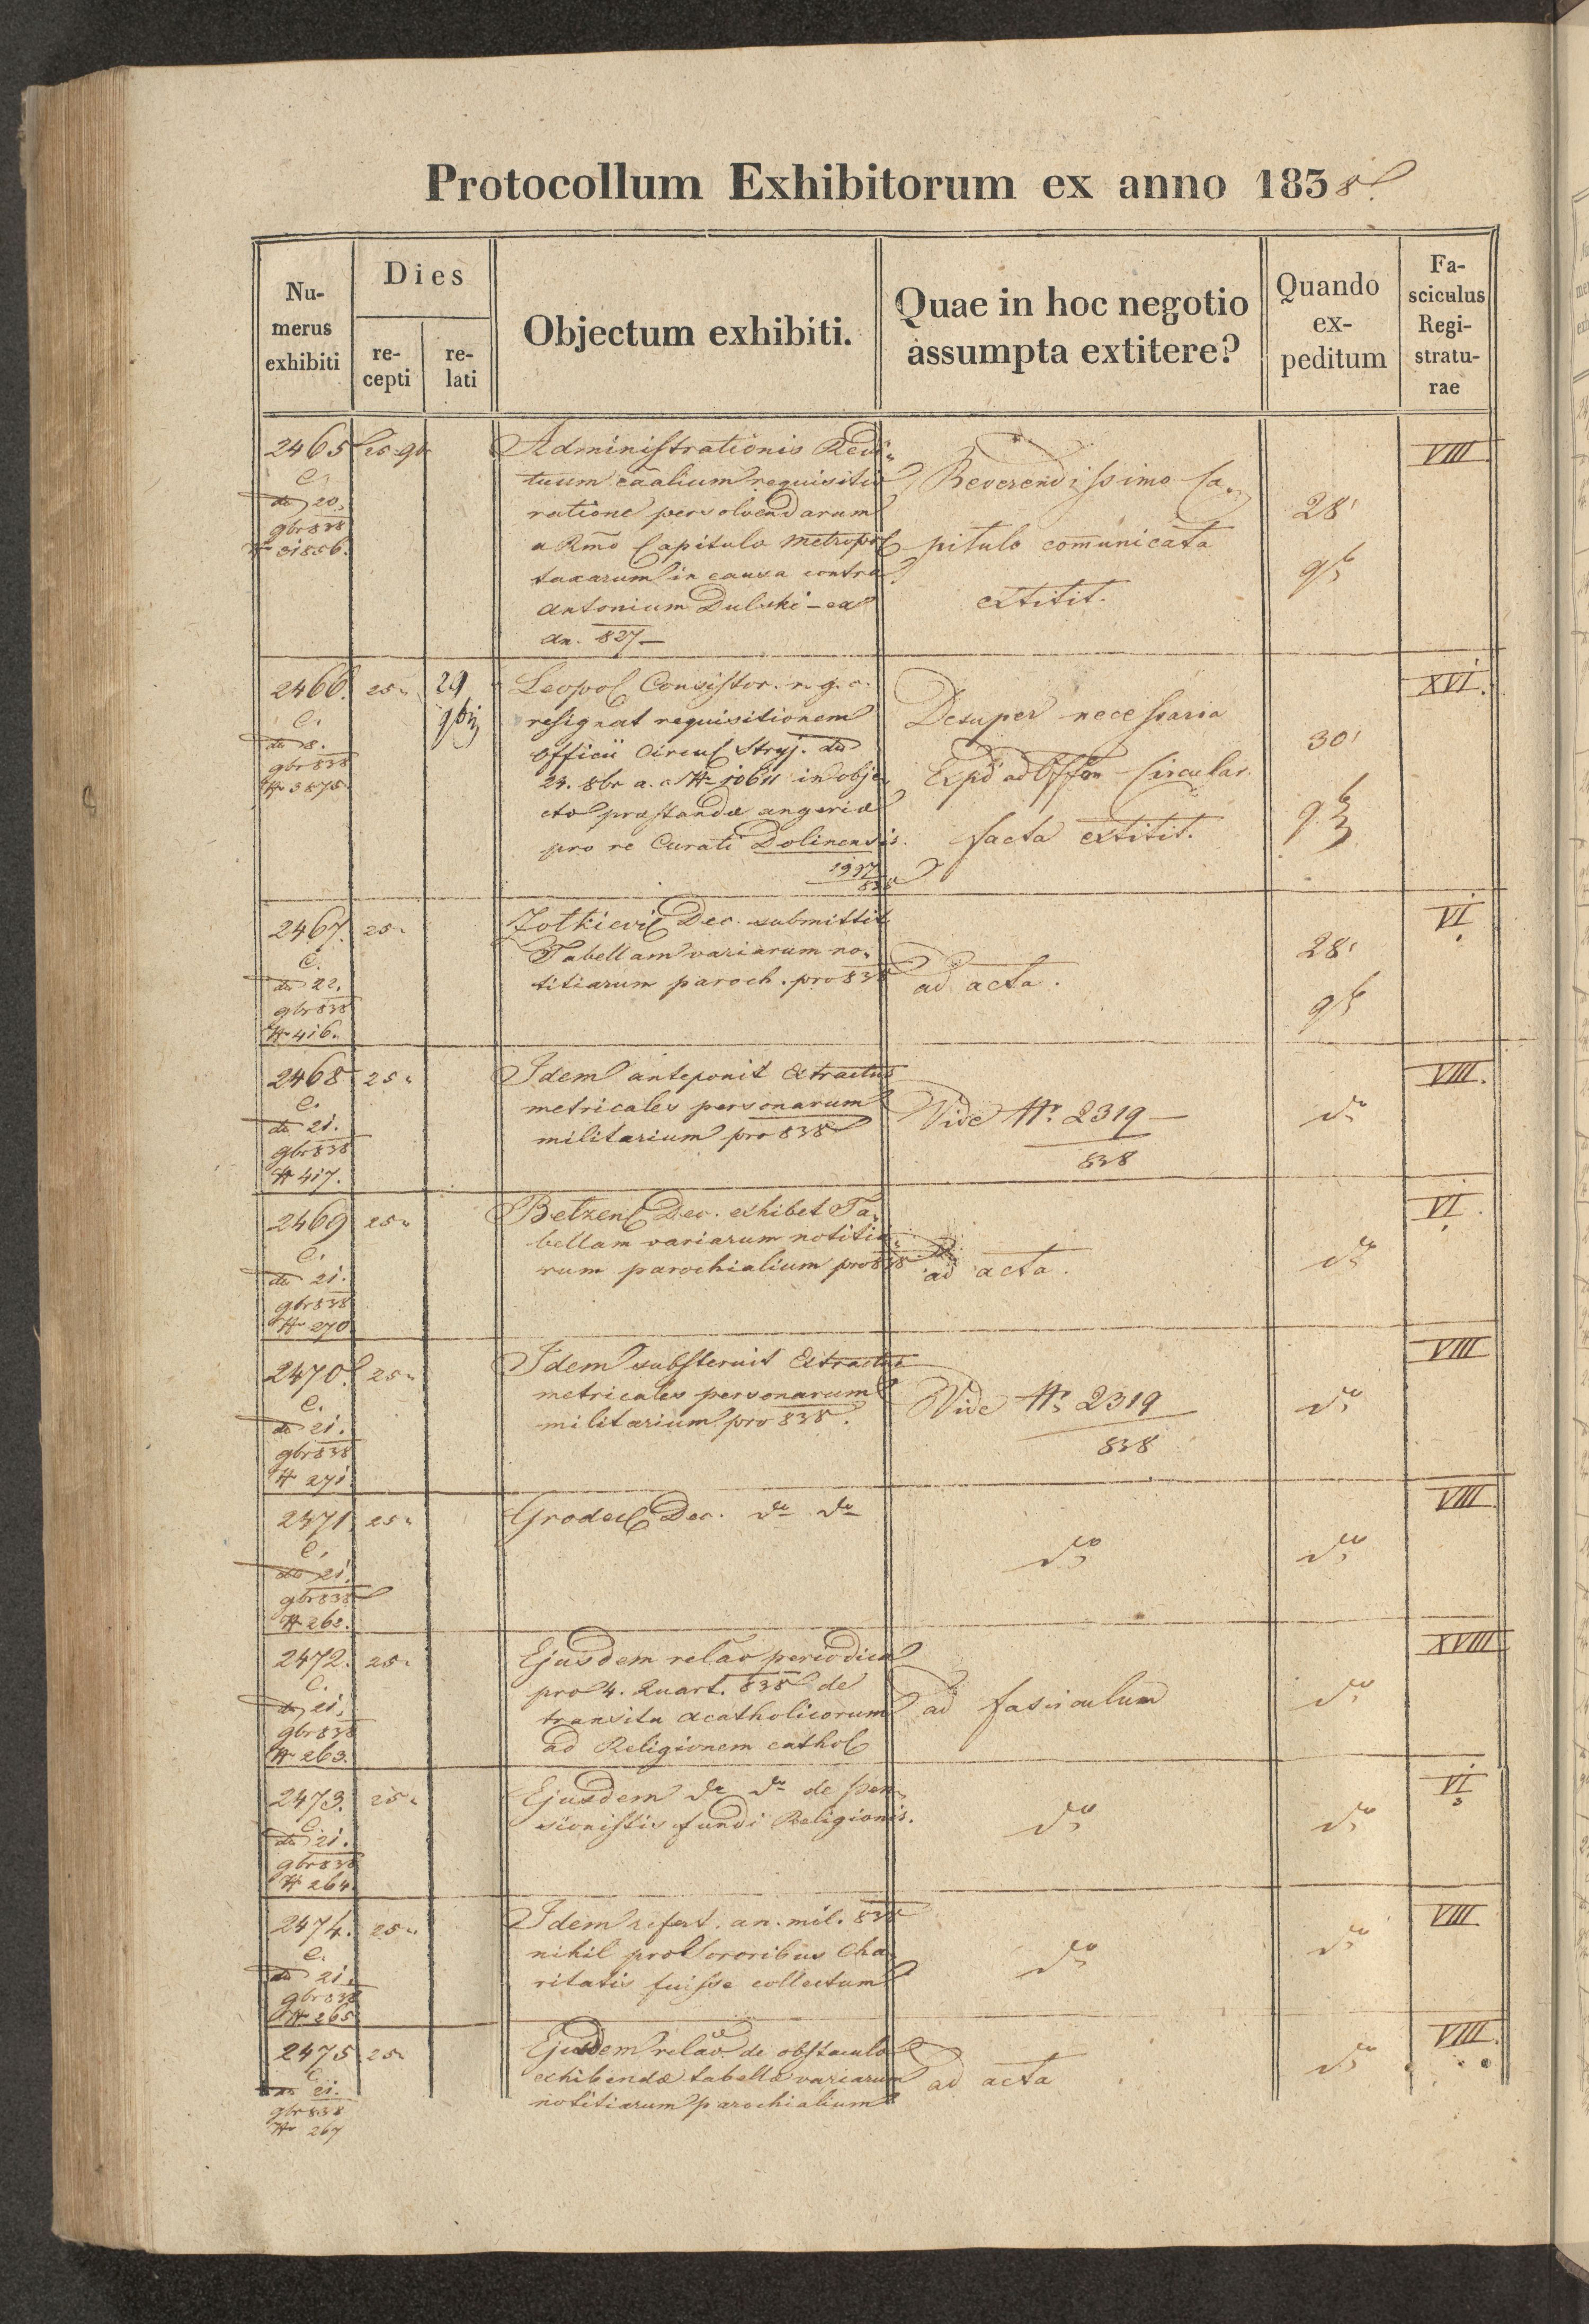 Protocollum Exhibitorum ex anno 1838
Nu-
merus
exhibiti
Dies
re-
cepti
re-
lati
Objectum exhibiti.
Quae in hoc negotio
assumpta extitere?
Quando
ex-
peditum
Fa-
sciculus
Regi-
stratu-
rae
2465
C.
do 20.
9br 838
N 31856.
25 9br
Administrationis Redi-
tuum caalium requisitio
ratione persolvendarum
a Rmo Capitulo Metropol
taxarum in causa contra
Antonium Dulski - ex
an. 827 -
Reverendissimo Ca-
pitulo comunicata
extitit.
28
9b
VIII
2466.
C.
do 8.
9br 838
N 3875.
25
29
9b
Leopol Consistor. r. g. c.
resignat requisitionem
officii Circul Stryj. do
23. 8br a. c. N 10611 in obje-
cto præstandæ angeriæ
pro re Curati Dolinensis.
1997
838
Desuper necessaria
Expd ad Offm Circular.
facta extitit.
30
9b
XVI.
2467.
C.
do 22.
9br 838
N 416.
25
Zołkievi Dec. submittit
Tabellam variarum no-
titiarum paroch. pro 838
ad acta.
28
9b
VI
2468
C.
do 21.
9br 838
N 417.
25
Idem anteponit Extractus
metricales personarum
militarium pro 838
Vide N. 2319
838
do
VIII.
2469
C.
do 21.
9br 838
N 270
25
Betzen Dec. exhibet Ta-
bellam variarum notitia-
rum parochialium pro 838
ad acta.
do
VI.
2470.
C.
do 21.
9br 838
N 271
25
Idem substernit Extractus
metricales personarum
militarium pro 838.
Vide N. 2319
838
do
VIII
2471
C.
do 21.
9br 838
N 262.
25
Grodec Dec. do do
do
do
VIII
2472.
C.
do 21.
9br 838
N 263.
25.
Ejusdem relao periodica
pro 4. Quart. 838 de
transitu acatholicorum
ad Religionem cathol
ad fasciculum
do
XVIII
2473.
C.
do 21.
9br 838
N 264.
25.
Ejusdem do do de pen-
sionistis fundi Religionis.
do
do
VI
2474.
C.
do 21.
9br 838
N 265
25.
Idem refert. an. mil. 838
nihil pro Sororibus Cha-
ritatis fuisse collectum
do
do
VIII
2475
C.
do 21.
9br 838
N 267
25
Ejusdem relao de obstaculo
exhibendæ tabellæ variarum
notitiarum parochialium
ad acta
do
VIII.